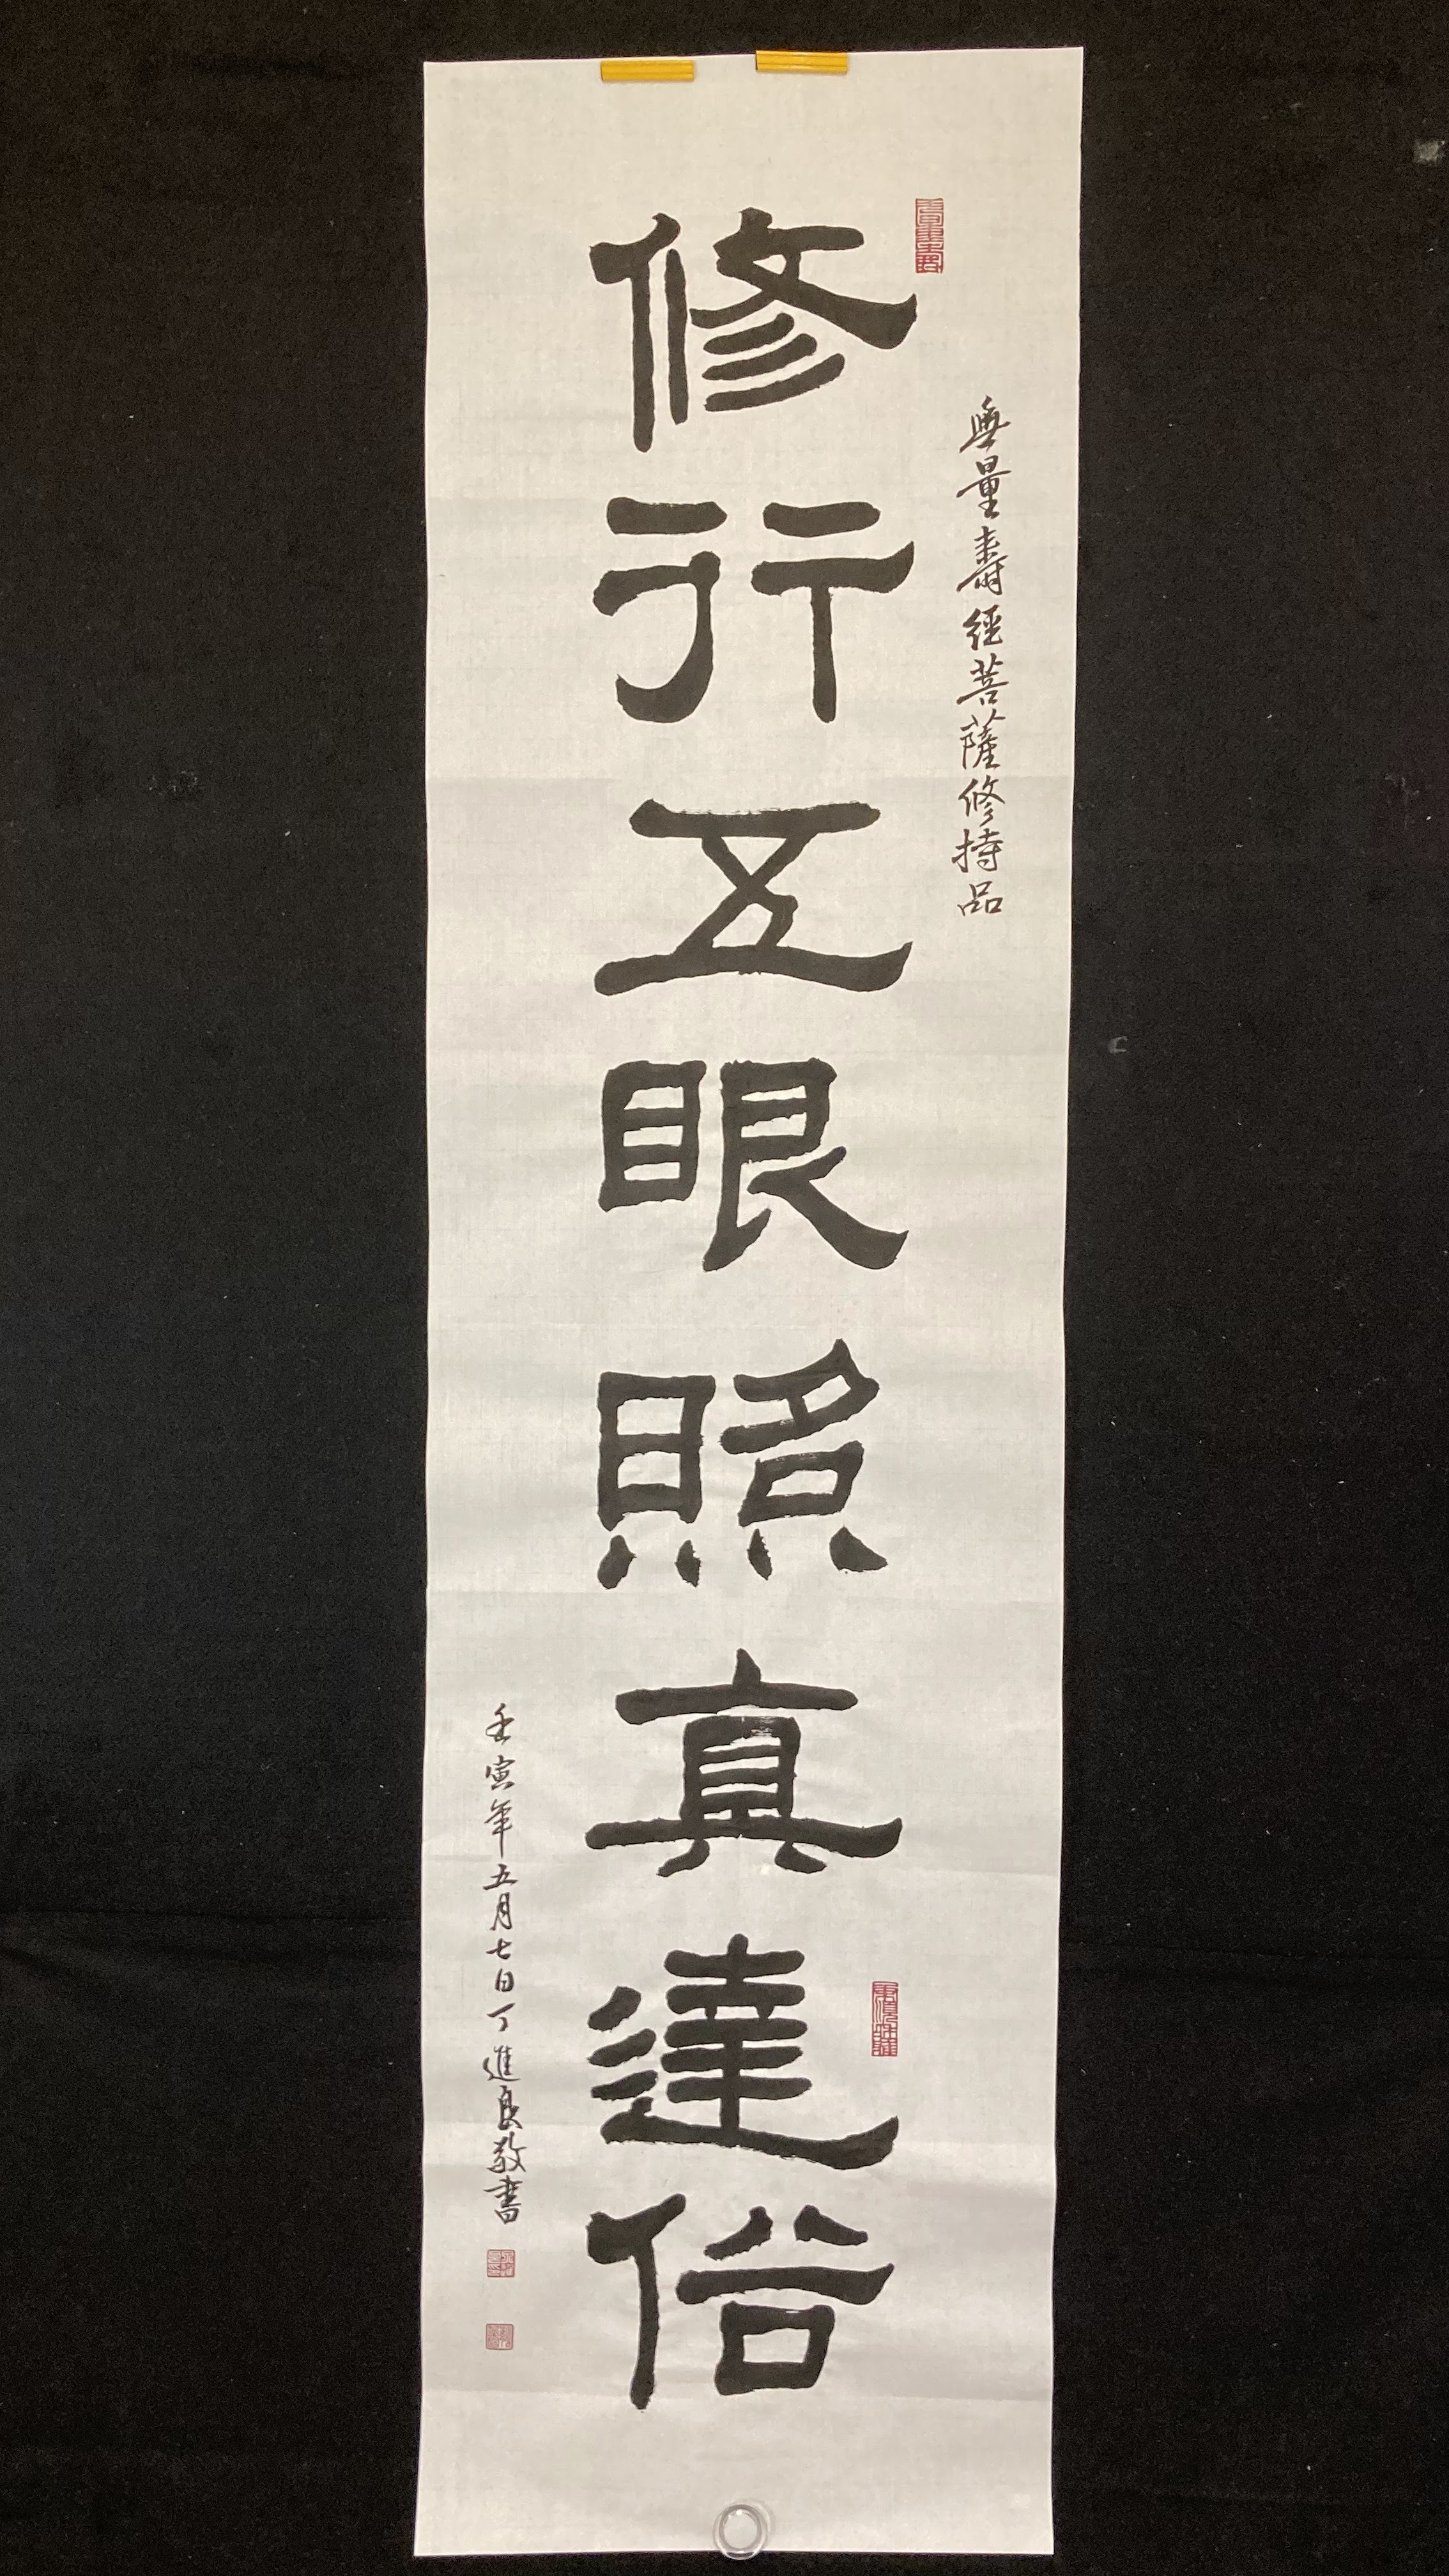 無量壽經菩薩修持品
修行五眼照真達俗
壬寅年五月七日丁進良敬書